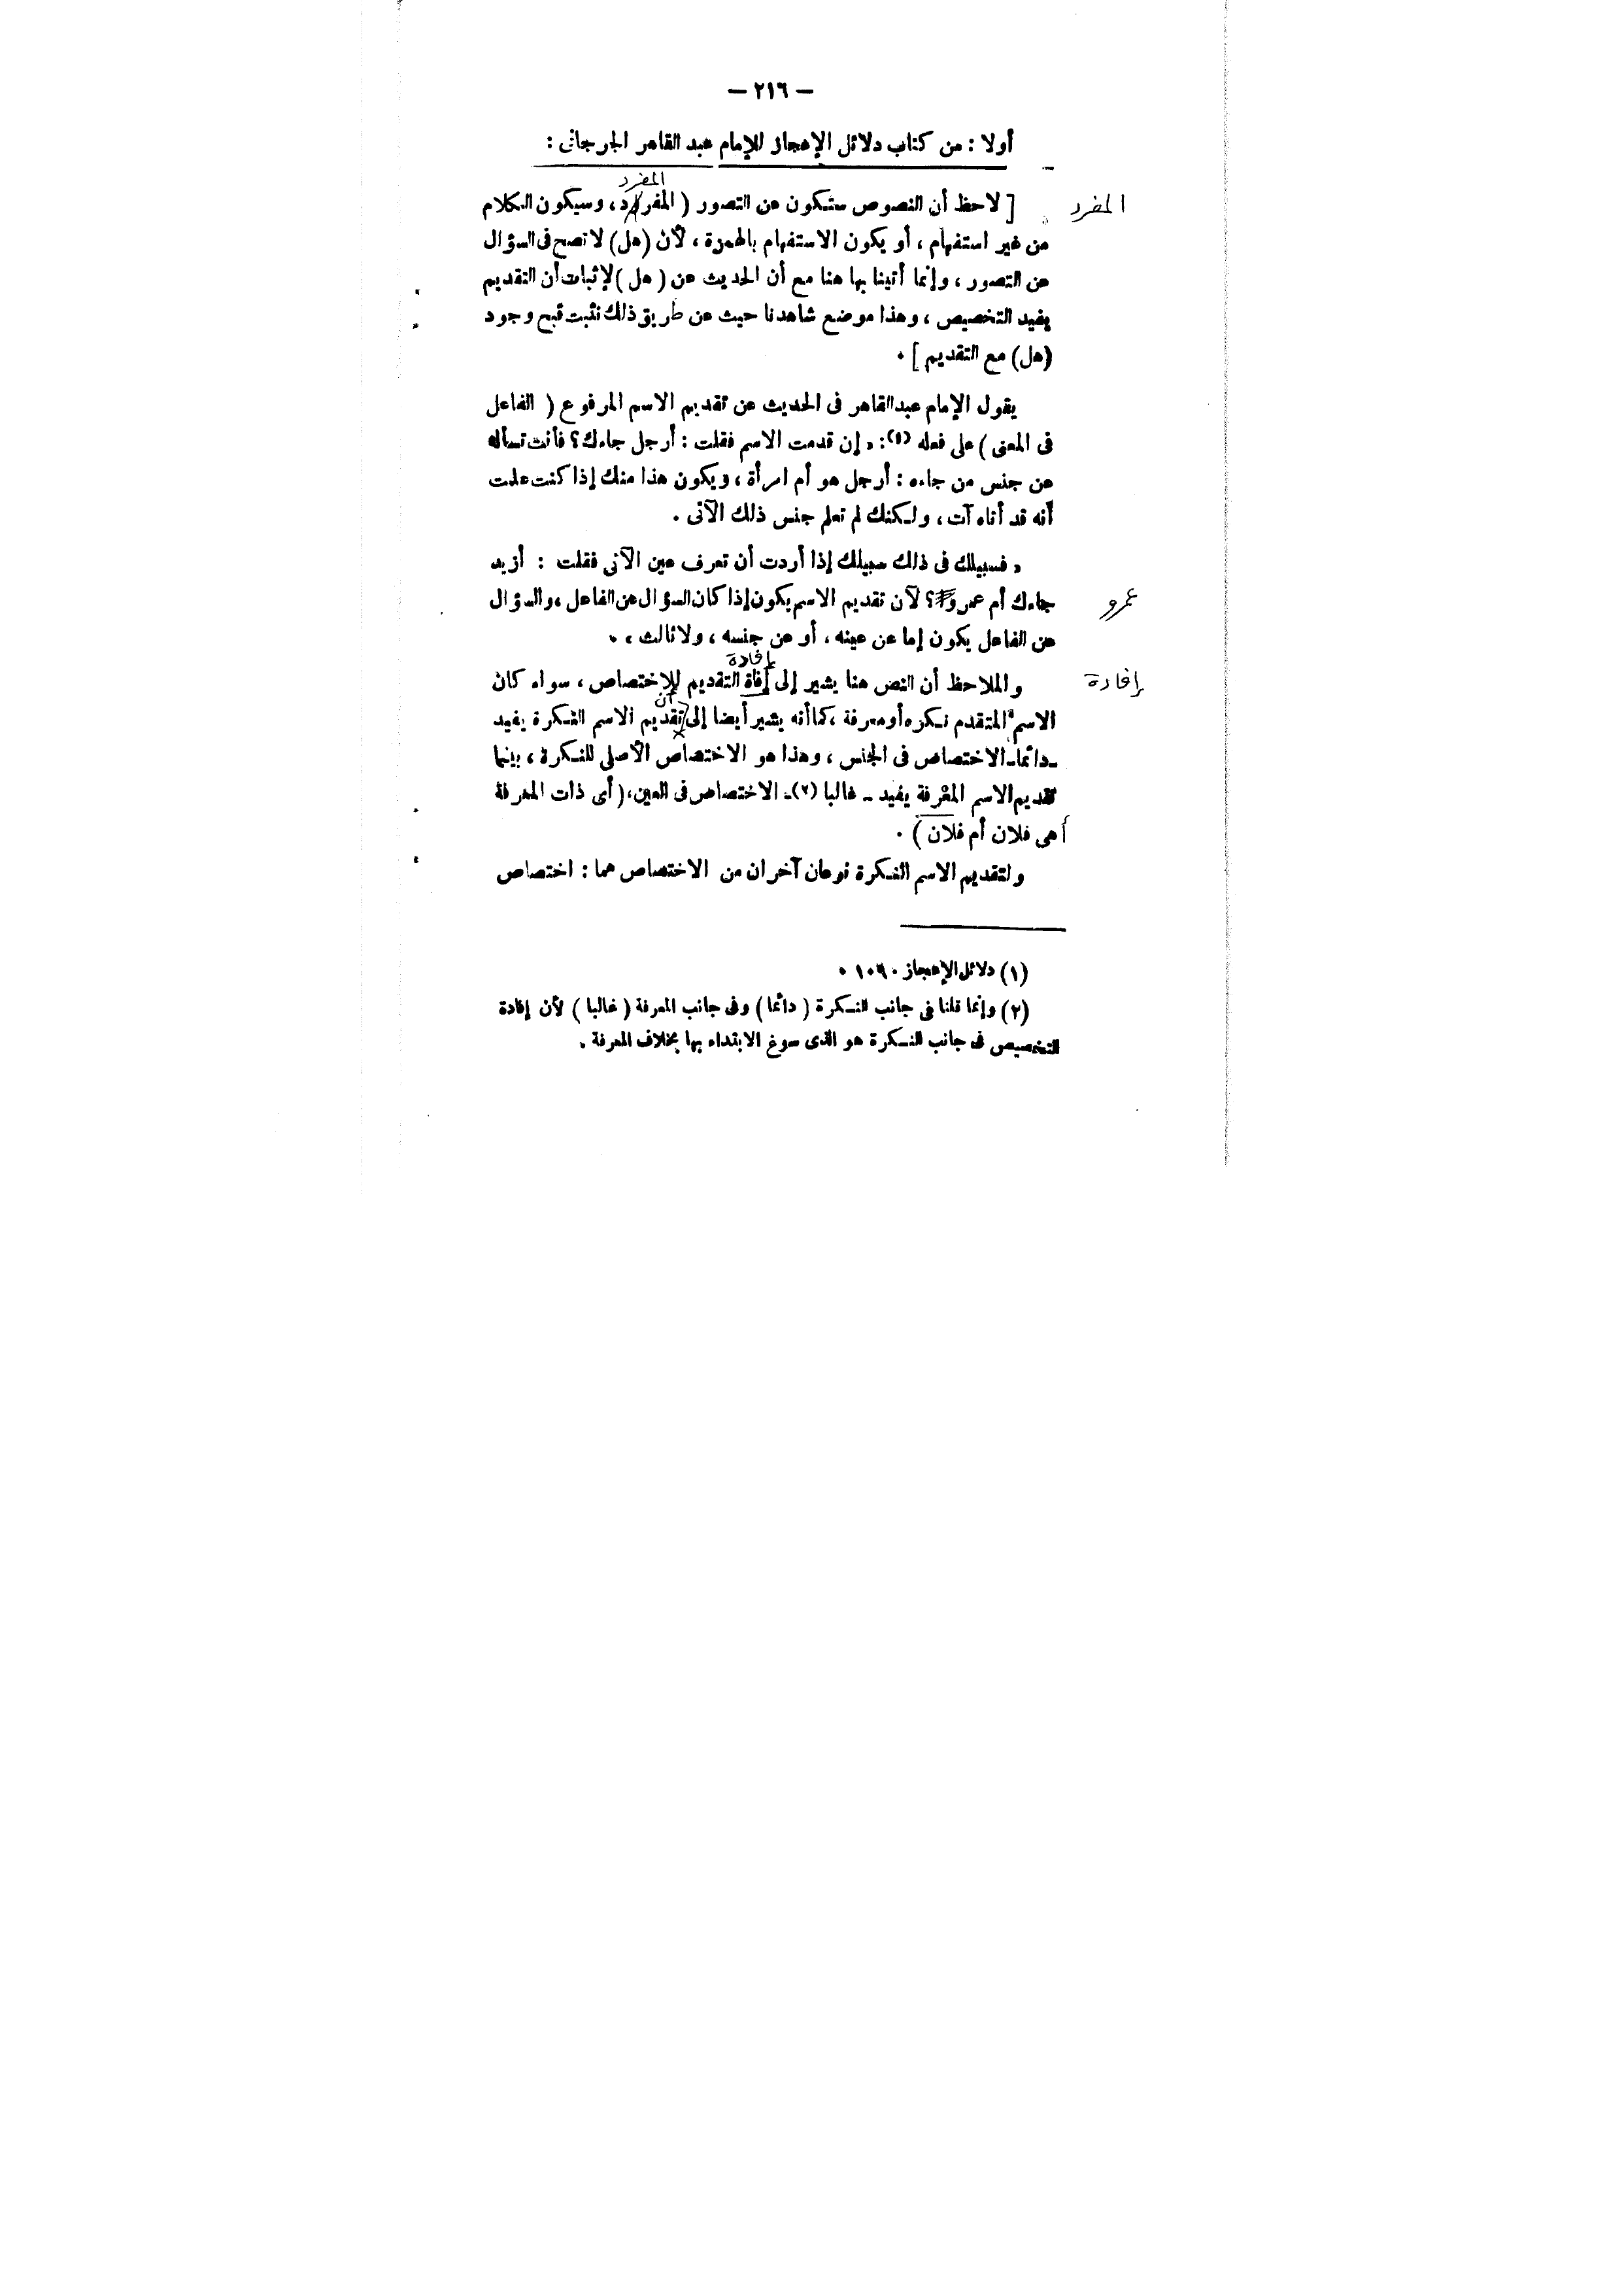 — ٢١٦ —
أولا : من كتاب دلائل الإعجاز للإمام عبد القاهر الجرجانى :
المفرد
[ لاحظ أن النصوص ستكون عن التصور ( المفرد ، وسيكون الكلام
المفرد
من غير استفهام ، أو يكون الاستفهام بالهمزة ، لأن (هل) لا تصح فى السؤال
عن التصور ، وإنما أتينا بها هنا مع أن الحديث عن ( هل ) لإثبات أن التقديم
يفيد التخصيص ، وهذا موضع شاهدنا حيث عن طريق ذلك نثبت قبح وجود
(هل) مع التقديم ] .
يقول الإمام عبد القاهر فى الحديث عن تقديم الاسم المرفوع ( الفاعل
فى المعنى ) على فعله (١) : « إن قدمت الاسم فقلت : أرجل جاءك ؟ فأنت تسأله
عن جنس من جاءه : أرجل هو أم امرأة ، ويكون هذا منك إذا كنت علمت
أنه قد أتاه آت ، ولكنك لم تعلم جنس ذلك الآتى .
« فسبيلك فى ذلك سبيلك إذا أردت أن تعرف عين الآتى فقلت : أزيد
جاءك أم عمرو ؟ لأن تقديم الاسم يكون إذا كان السؤال عن الفاعل ، والسؤال
عمرو
عن الفاعل يكون إما عن عينه ، أو عن جنسه ، ولا ثالث » .
إفادة
والملاحظ أن النص هنا يشير إلى إفاة التقديم للاختصاص ، سواء كان
إفادة
أن
الاسم المتقدم نكره أو معرفة ، كما أنه يشير أيضا إلى تقديم الاسم النكرة يفيد
ـ دائما ـ الاختصاص فى الجنس ، وهذا هو الاختصاص الأصلى للنكرة ، بينما
تقديم الاسم المعرفة يفيد ـ غالبا (٢) ـ الاختصاص فى العين ، ( أى ذات المعرفة
أهى فلان أم فلان ) .
ولتقديم الاسم النكرة نوعان آخران من الاختصاص هما : اختصاص
(١) دلائل الإعجاز
(٢) وإنما قلنا فى جانب النكرة ( دائما ) وفى جانب المعرفة ( غالبا ) لأن إفادة
التخصيص فى جانب النكرة هو الذى سوغ الابتداء بها بخلاف المعرفة .